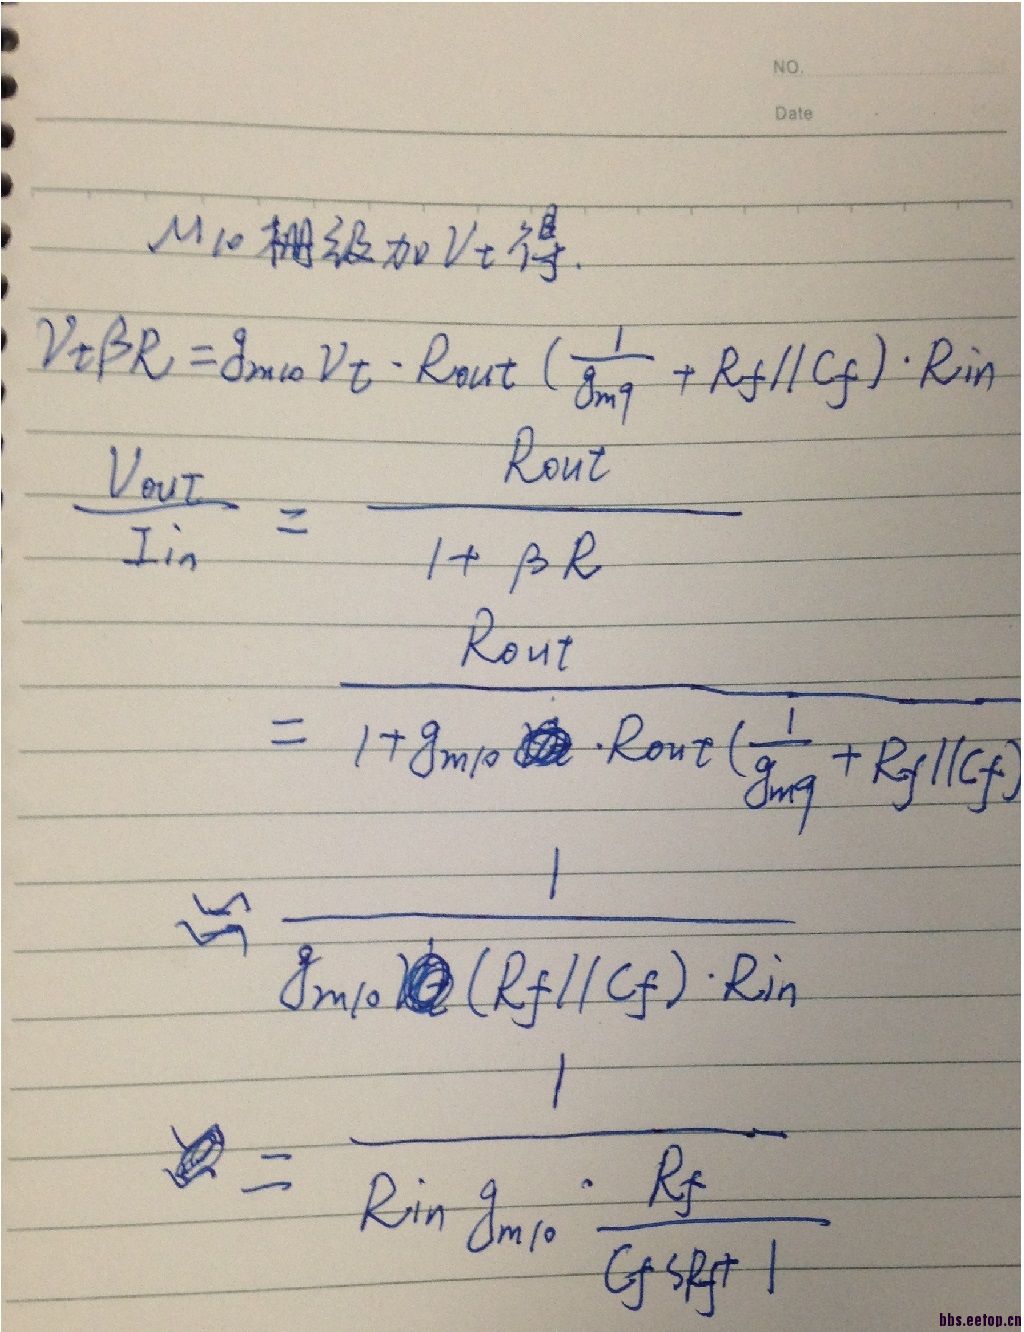 NO.
Date
M10栅级加Vt得.
VtβR = gm10 Vt · Rout ( 1/gm9 + Rf//Cf ) · Rin
Vout/Iin = Rout/(1 + βR)
= Rout/(1 + gm10 · Rout ( 1/gm9 + Rf//Cf )
≈ 1/(gm10 (Rf//Cf) · Rin)
= 1/(Rin gm10 · Rf/(CfSRf + 1))
bbs.eetop.cn